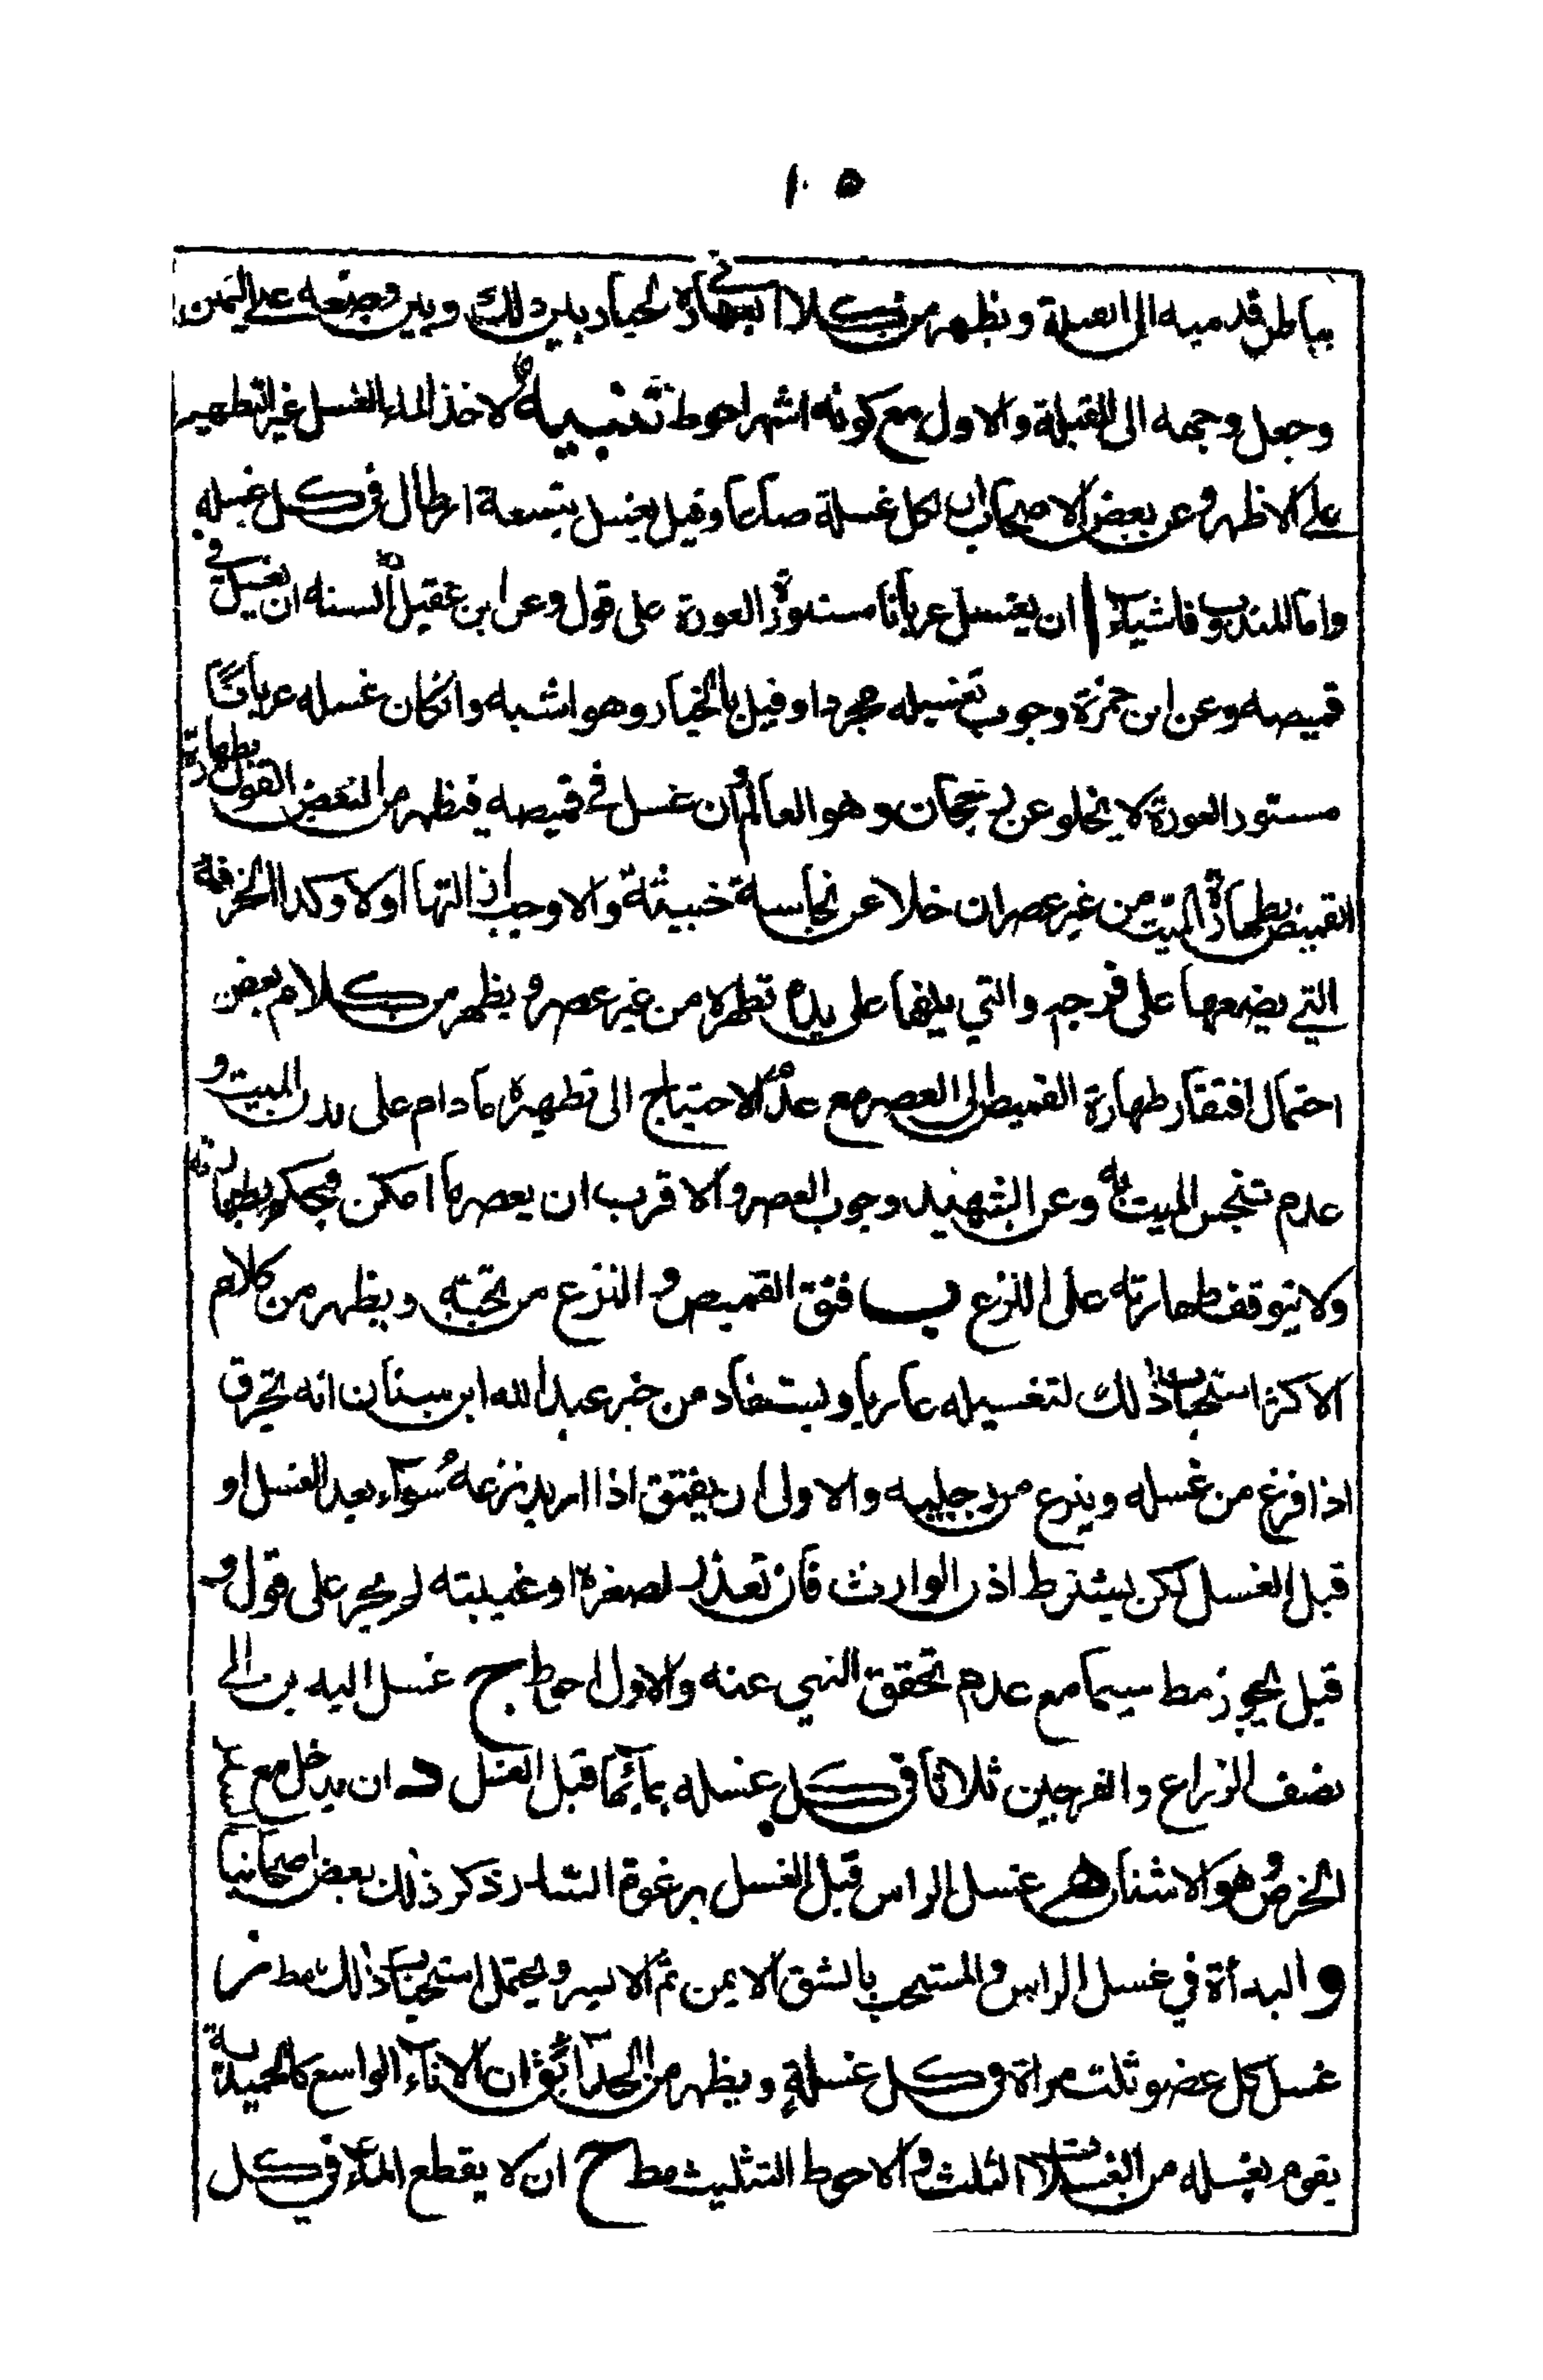 ١٠٥
بباطن قدميه الى القبلة ويظهر من في الطهارة الخيار بين ذلك وبين وضعه على اليمين
وجعل وجهه الى القبلة والاول مع كونه اشهر احوط تنبيه لا حد لماء الغسل غير التطهير
على الاظهر وعن بعض الاصحاب ان لكل غسلة صاعا وقيل يغسل بتسعة ارطال في كل غسله
واما المندوب فاشياء ا ان يغتسل عريانا مستور العورة على قول وعن ابن عقيل السنه ان يغسل في
قميصه وعن ابن حمزة وجوب تغسيله مجردا وقيل بالخيار وهو اشبه وان كان غسله عريانًا
مستور العورة لا يخلو عن رجحان وهو العالم وان غسل في قميصه فيظهر من البعض القول بطهارة
القميص بطهارة الميت من غير عصر ان خلا عن نجاسة خبيثة والا وجب ازالتها اولا وكذا الخرقة
التي يضعها على فرجه والتي يلفها على يده تطهر من غير عصر ويظهر من كلام بعض
احتمال افتقار طهارة القميص الى العصر مع عدم الاحتياج الى تطهيره ما دام على بدن الميت و
عدم تنجس الميت به وعن الشهيد وجوب العصر والاقرب ان يعصر ما امكن فيحكم بطهارته
ولا يتوقف طهارته على النزع ب فتق القميص والنزع من تحته ويظهر من كلام
الاكثر استحباب ذلك لتغسيله عاريا ويستفاد من خبر عبد الله ابن سنان انه يخرق
اذا فرغ من غسله وينزع من رجليه والاولى ان يفتق اذا اريد نزعه سواء بعد الغسل او
قبل الغسل لكن يشترط اذن الوارث فان تعذر لصغره او غيبته لم يجز على قول و
قيل يجوز مط سيما مع عدم تحقق النهي عنه والاول احوط ج غسل اليدين الى
نصف الزراع والفرجين ثلاثا في كل غسله بمائها قبل الغسل د ان يدخل مع
الحرض وهو الاشنان هـ غسل الراس قبل الغسل برغوة السدر ذكر ذلك بعض اصحابنا
و البدأة في غسل الراس والمستحب بالشق الايمن ثم الايسر ويحتمل استحباب ذلك مط ز
غسل كل عضو ثلث مراة في كل غسلة ويظهر من الحدائق ان الاناء الواسع كالحميدية
يقوم بغسله من الغسلات الثلث والاحوط التثليث مط ح ان لا يقطع الماء في كل